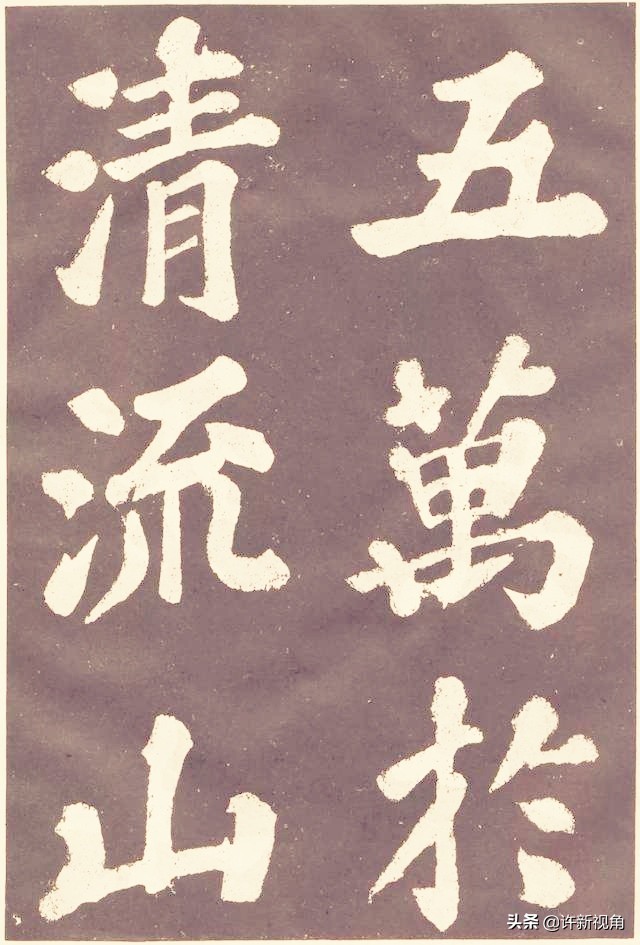 五萬於
清流山
头条 @许新视角